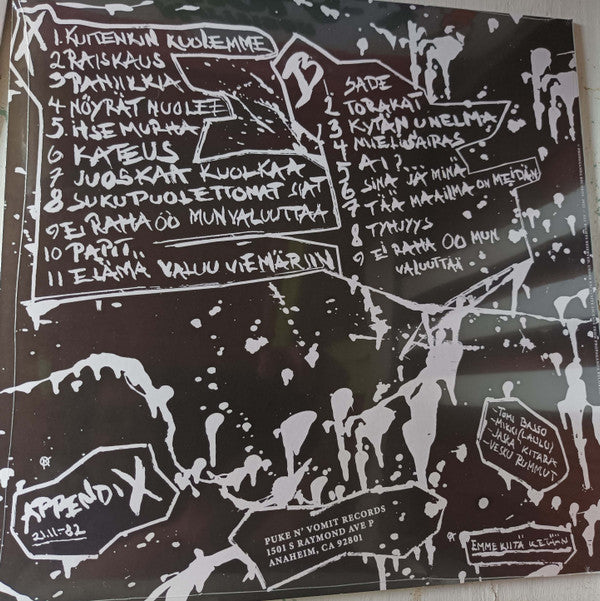 1. KUITENKIN KUOLEMME
2 RAISKAUS
3 PANIIKKIA
4 NÖYRÄT NUOLEE
5 ITSEMURHA
6 KATEUS
7 JUOSKAA KUOLKAA
8 SUKUPUOLETTOMAT SIAT
9 EI RAHA OO MUN VALUUTTAA
10 PAPIT
11 ELÄMÄ VALUU VIEMÄRIIN
B
SADE
2 TORAKAT
3 KYTÄN UNELMA
4 MIELISAIRAS
5 AI?
6 SINÄ JÄ MINÄ
7 TÄÄ MAAILMA ON MEIDÄN
8 TYHJYYS
9 EI RAHA OO MUN
VALUUTTAA
-TOMI BASSO
-MIKKI (LAULU)
-JASKA KITARA
-VESKU RUMMUT
APPENDIX
21.11-82
PUKE N' VOMIT RECORDS
1501 S RAYMOND AVE P
ANAHEIM, CA 92801
EMME KIITÄ KETÄÄN